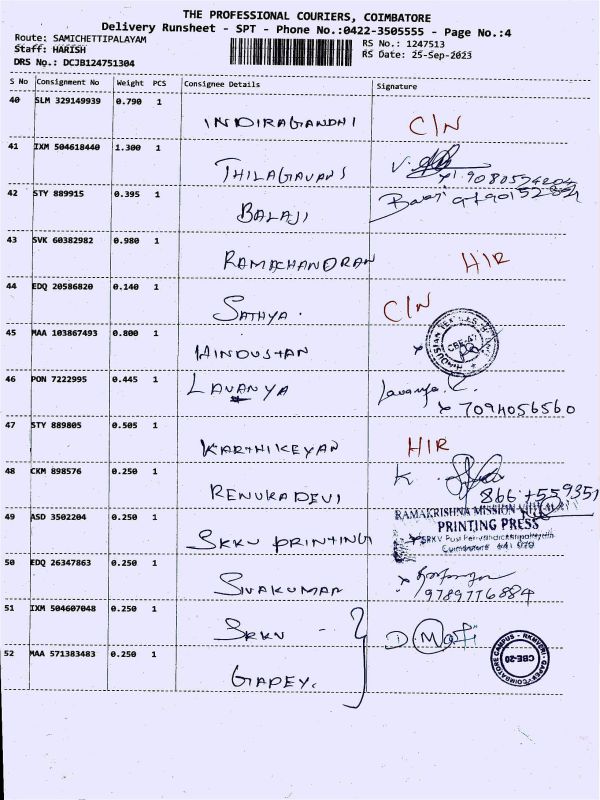 THE PROFESSIONAL COURIERS, COIMBATORE
Delivery Runsheet - SPT - Phone No.:0422-3505555 - Page No.:4
Route: SAMICHETTIPALAYAM
Staff: HARISH
DRS No.: DCJB124751304
RS No.: 1247513
RS Date: 25-Sep-2023
S No Consignment No Weight PCS Consignee Details Signature
40 SLM 329149939 0.790 1
INDIRAGANDHI C/N
41 IXM 504618440 1.300 1
THILAGAVANS V.
42 STY 889915 0.395 1
BALAJI
43 SVK 60382982 0.980 1
RAMACHANDRAN HIR
44 EDQ 20586820 0.140 1
SATHYA. C/N
45 MAA 103867493 0.800 1
HINDUSTAN
46 PON 7222995 0.445 1
LAVANYA Lavanya.
7094056560
47 STY 889805 0.505 1
KARTHIKEYAN HIR
48 CKM 898576 0.250 1
RENUKADEVI K.
49 ASD 3502204 0.250 1
RAMAKRISHNA MISSION
PRINTING PRESS
SRKV PRINTING
50 EDQ 26347863 0.250 1
SIVAKUMAR
9789776884
51 IXM 504607048 0.250 1
SRKV -
52 MAA 571383483 0.250 1
CBE-20